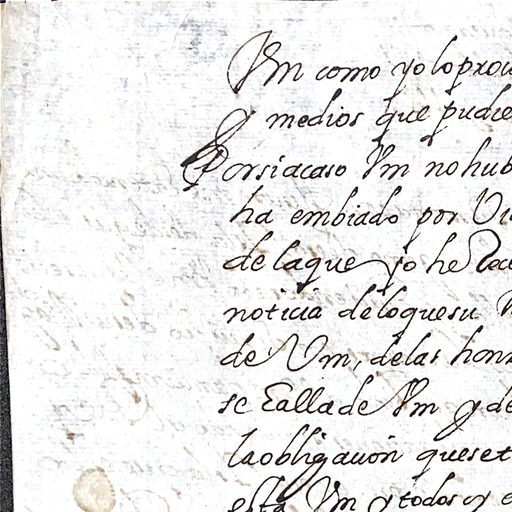 Vm como yo lo procu
y medios que pudie
Porsiacaso Vm no hub
ha embiado por Vi
de la que yo he Rece
noticia de lo que su
de Vm, de las honr
se halla de Vm y de
la obligacion que se t
esta Vm y todos